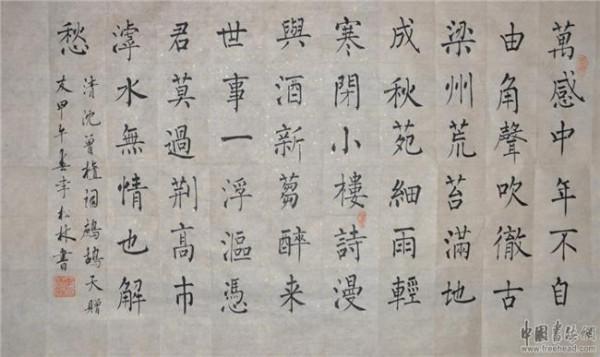 萬感中年不自
由角聲吹徹古
梁州荒苔滿地
成秋苑細雨輕
寒閉小樓詩漫
與酒新蒭醉来
世事一浮漚憑
君莫過荆高市
滹水無情也解
愁
清沈曾植詞鷓鴣天贈
友甲午春李松林書
中國書法網
www.freehead.com